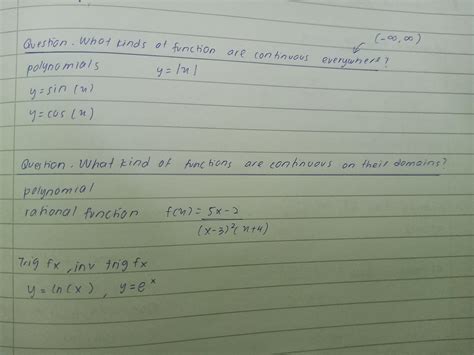 (-∞,∞)
Question. What kinds of function are continuous everywhere?
polynomials y=|x|
y=sin(x)
y=cos(x)
Question. What kind of functions are continuous on their domains?
polynomial
rational function f(x)= 5x-2
(x-3)²(x+4)
Trig fx, inv trig fx
y=ln(x), y=eˣ